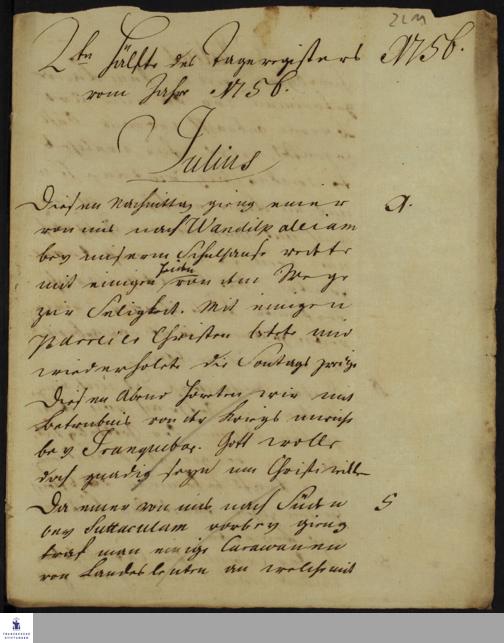 2 L 11
2te Hälfte des Tageregisters 1756.
vom Jahr 1756.
Julius
Diesen Nachmittag gieng einer 1.
von uns nach Wandipalleiam
bey unserm Schulhause redete
mit einigen Heiden von dem Wege
zur Seligkeit. Mit einigen
Parreier Christen betete und
wiederholete die Sontags predigt
Diesen Abend höreten wir mit
betrübnis von der Kriegs unruhe
bey Tranquebar. Gott wolle
doch gnädig seyn um Christi willen
Da einer von uns nach Süden 5
bey Suttaculam vorbey gieng
traf man einige Carawanen
von Landesleuten an welche mit
FRANCKESCHE
STIFTUNGEN